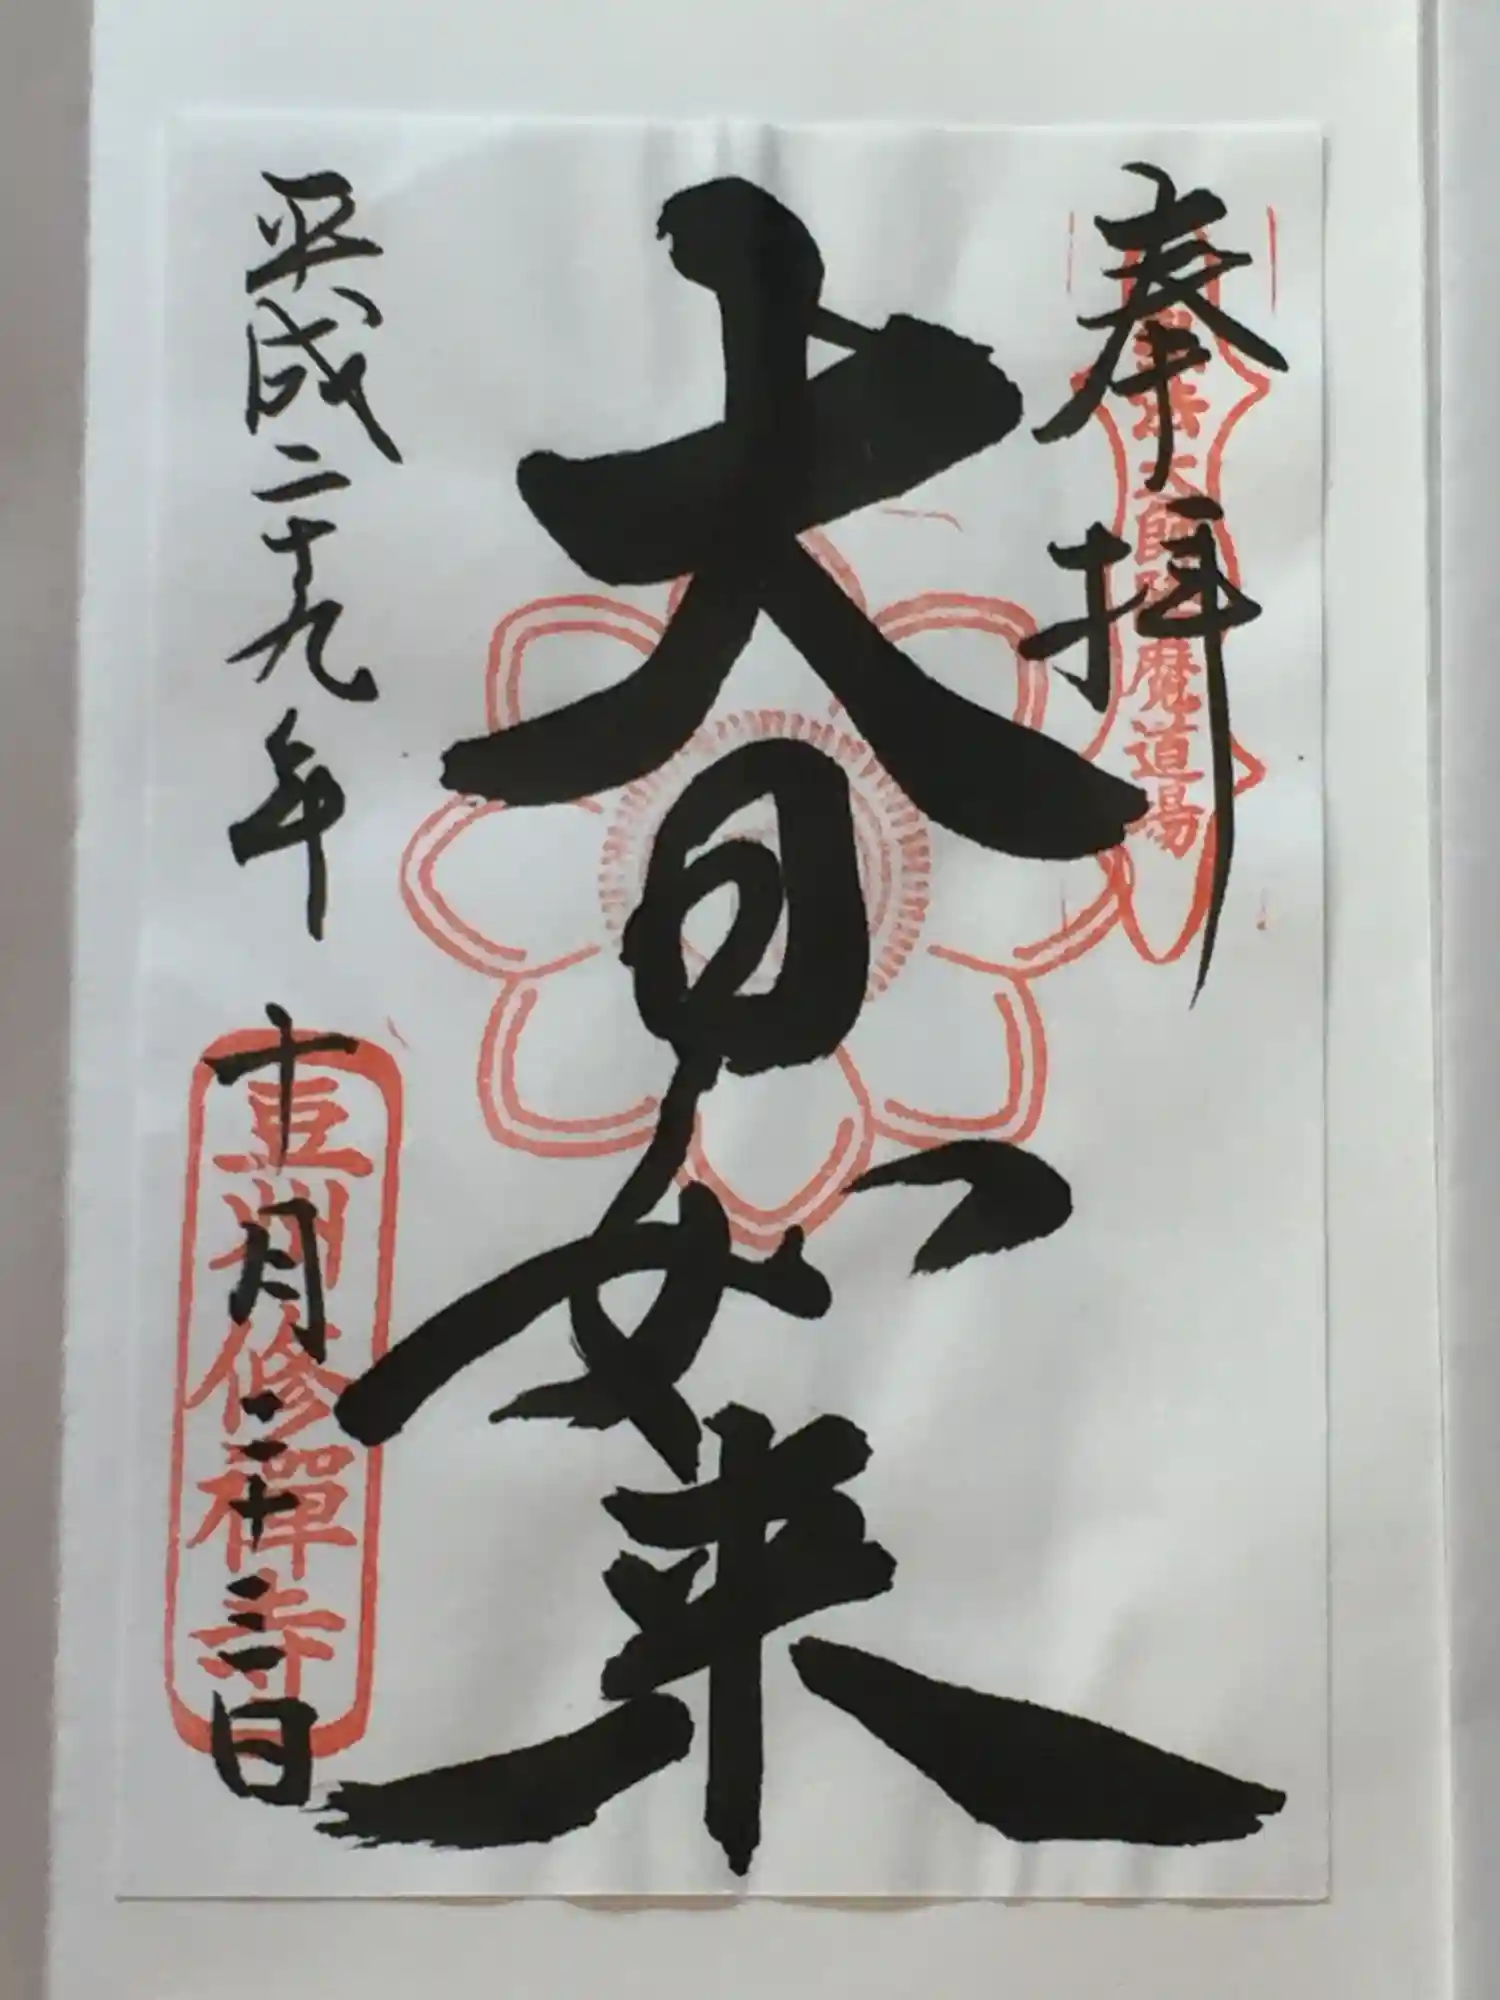 奉拝
大師降魔道場
大日如来
平成二十九年
十月二十三日
豆州修禅寺